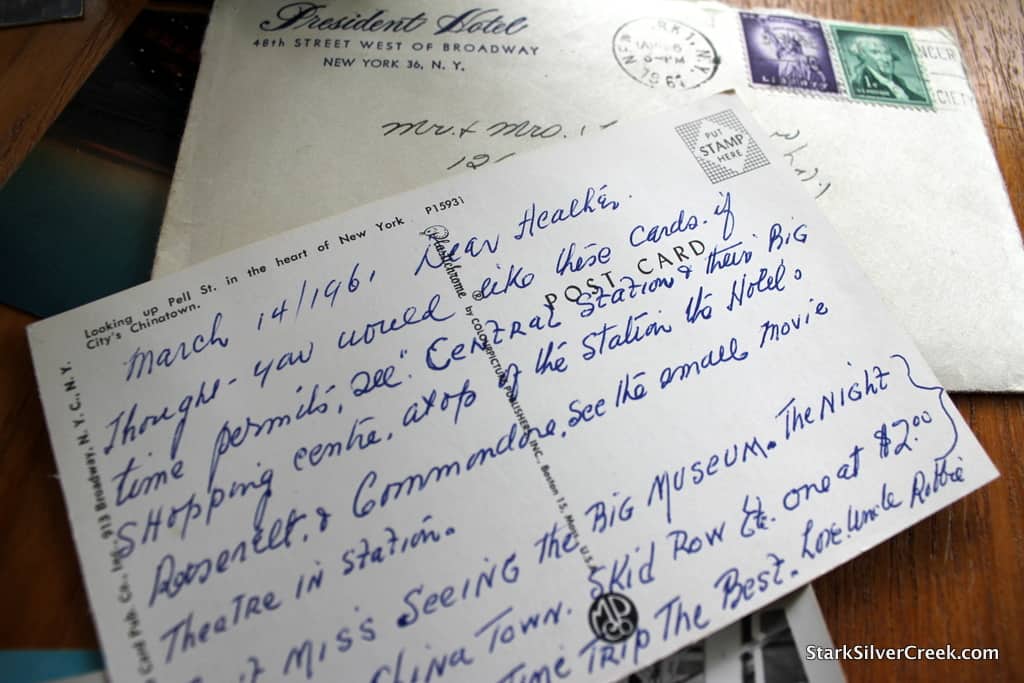 President Hotel
48th STREET WEST OF BROADWAY
NEW YORK 36, N. Y.
NEW YORK 1, N.Y.
6-PM
1961
LIBERTY
Mr. & Mrs.
121
PUT
STAMP
HERE
Looking up Pell St. in the heart of New York P15931
City's Chinatown.
POST CARD
Plastichrome ® by COLOURPICTURE PUBLISHERS, INC., Boston 15, Mass., U.S.A.
Card Pub. Co., Inc., 913 Broadway, N. Y. C., N. Y.
March 14/1961 Dear Heather.
Thought you would like these cards. if
time permits, see "Central Station & their Big
Shopping centre, atop of the Station the Hotels
Roosevelt, & Commondore, see the small movie
Theatre in Station.
Miss Seeing the Big Museum. The Night
Time Trip China Town. Skid Row Etc. one at $2.00
The Best. Love. Uncle Robbie
StarkSilverCreek.com